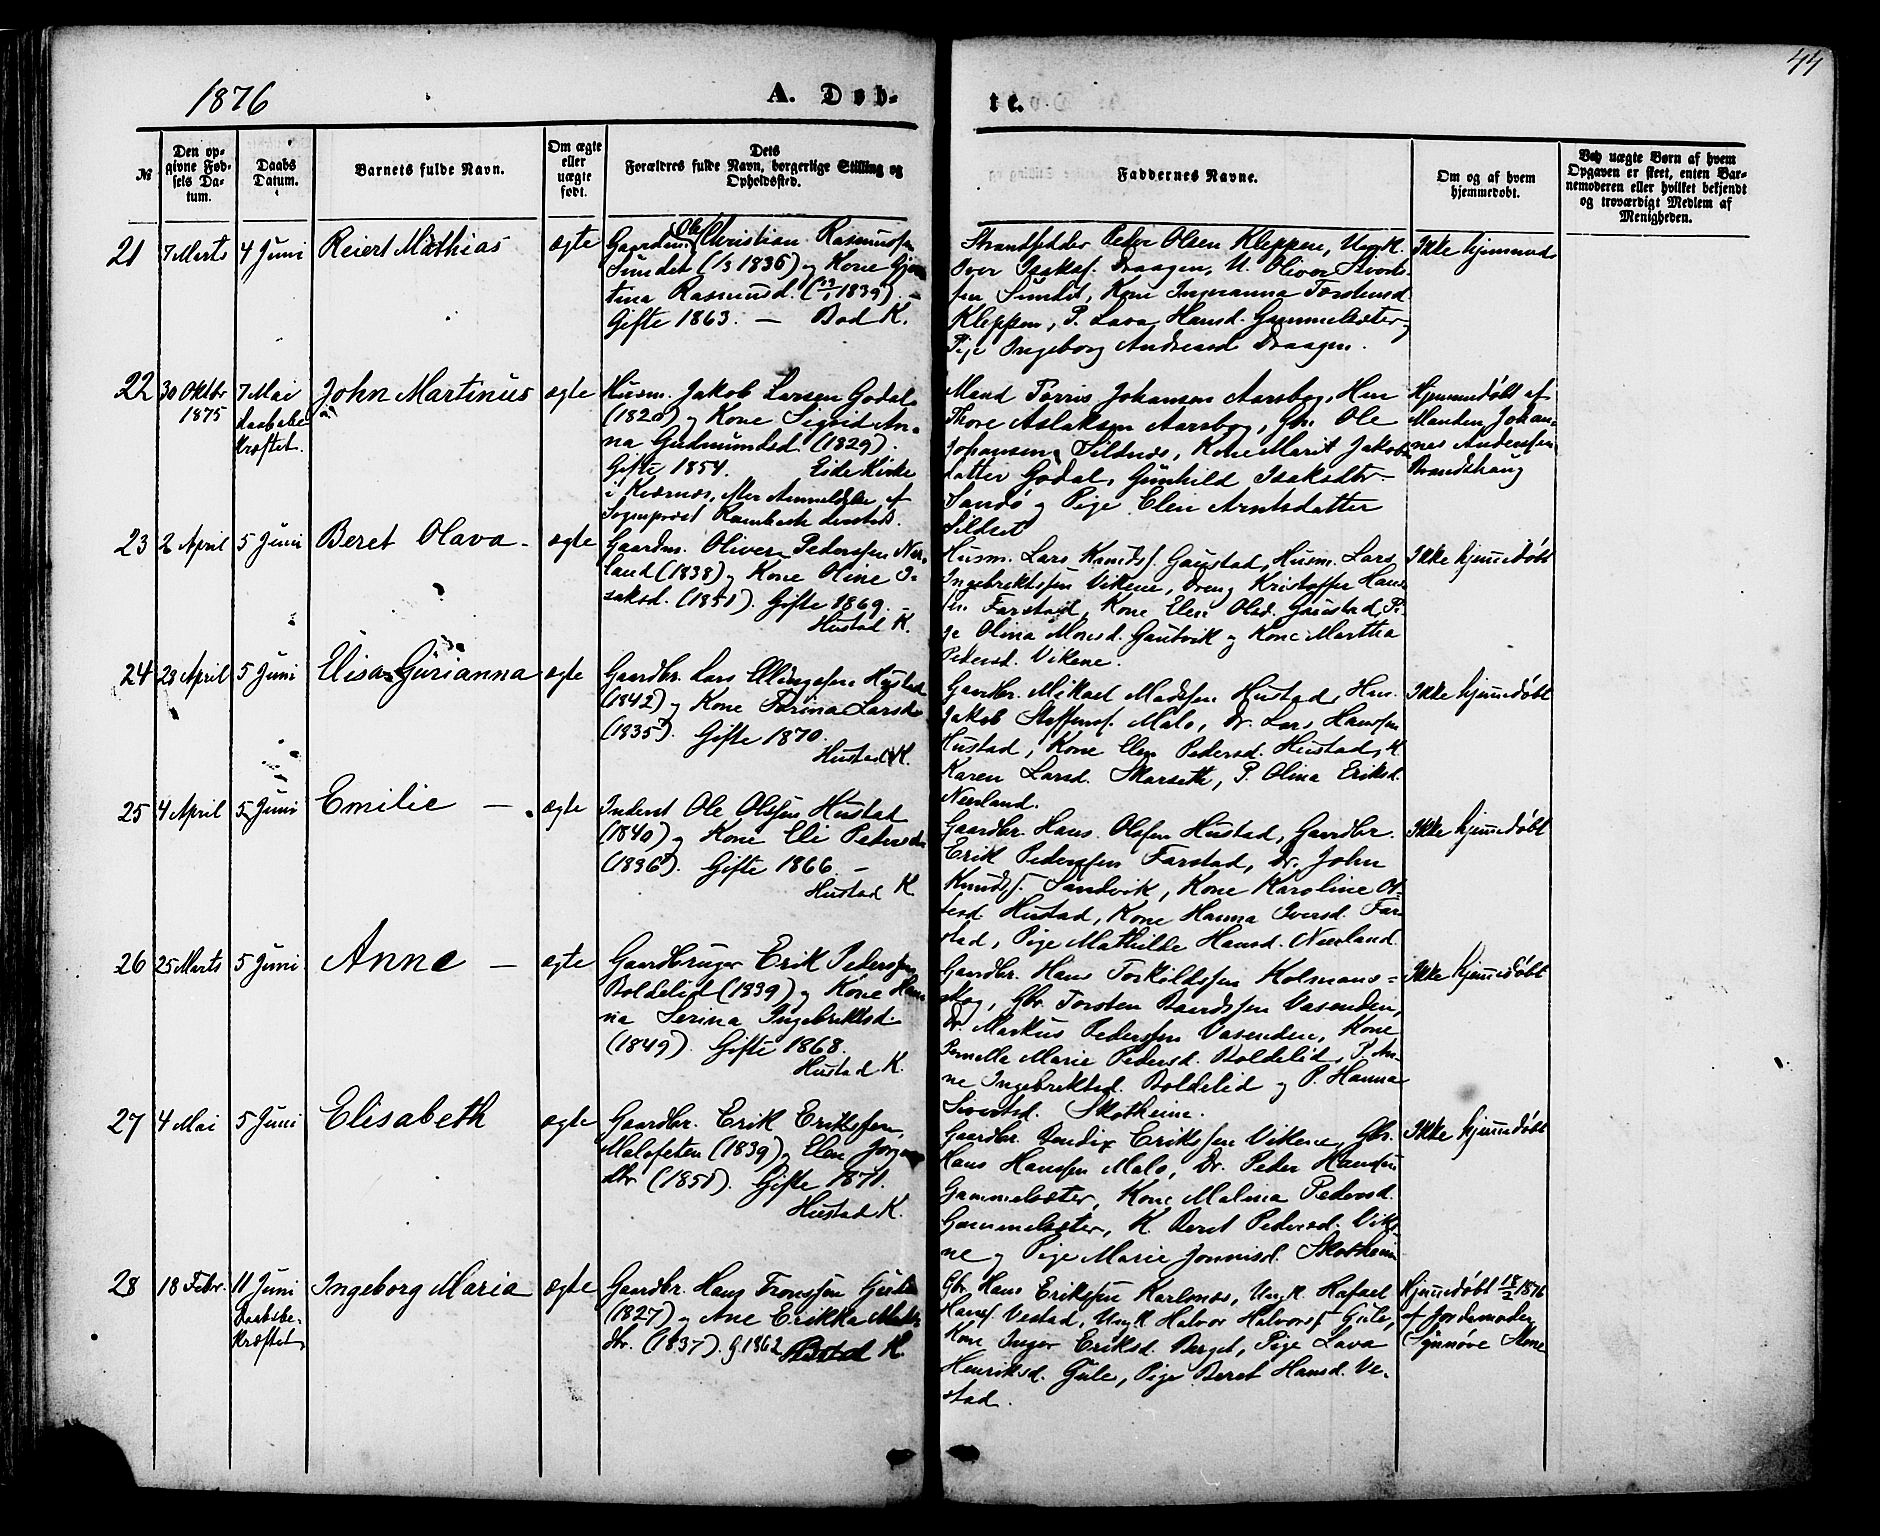 1876
A. Døb-
te.
44
№
Den opgivne Fødsels Datum.
Daabs Datum.
Barnets fulde Navn.
Om ægte eller uægte født.
Dets Forældres fulde Navn, borgerlige Stilling og Opholdssted.
Faddernes Navne.
Om og af hvem hjemmedøbt.
Ved uægte Børn af hvem Opgaven er skeet, enten Barnemoderen eller hvilket bekjendt og troværdigt Medlem af Menigheden.
21 7 Marts 4 Juni Reiert Mathias ægte
Gaardm. Ole Christian Rasmussen
Sundet (1/3 1836) og Kone
tina Rasmusd. (1839). –
Gifte 1863. — Bod K.
Strandsidder Peder Olsen Kleppen, Ungk.
Iver Isaks. Draagen, U. Oliver
sen Sundet, Kone Ingeranna Torstensd.
Kleppen, P. Lava Hansd. Gammelsæter,
Pige Ingeborg Andreasd Draagen.
Ikke hjemmed.
22 30 Oktbr 1875 7 Mai Daabsbekræftet. John Martinus ægte
Husm. Jakob Larsen Godal
(1820) og Kone Sigrid An-
na Gudmundsd. (1829).
Gifte 1854. Eide Kirke
i Kvernæs, efter Anmeldelse af
Sogneprest Rambech dersteds.
Mand Torris Johansen Aarsbog, Hr
Thore Aslaksen Aarsbog, Gbr. Ole
Johansen Sildnes, Kone Marit Jakobs
datter Godal, Gunhild Isaksdtr
Sandø og Pige Elen Arntsdatter
Sildset
Hjemmedøbt af
Manden Johan-
nes Andersen
Brandshaug
23 2 April 5 Juni Beret Olava – ægte
Gaardm. Oliver Pedersen Ner-
land (1838) og Kone Oline I-
saksd. (1851). Gifte 1869. –
Hustad K.
Husm. Lars Knuds. Gaustad, Husm. Lars
Ingebrektsen Vikene, Dreng Kristoffer Han-
sen Farstad, Kone Elen Olsd. Gaustad, Pi-
ge Olina Monsd. Gautvik og Kone Martha
Pedersd. Vikene.
Ikke hjemmedøbt
24 23 April 5 Juni Elisa Gurianna ægte
Gaardbr. Lars Ellingsen Hustad
(1842) og Kone Larsd
(1835). Gifte 1870.
Hustad K.
Gaardbr. Mikael Madsen Hustad,
Jakob Steffens. Malo, Dr. Lars Hansen
Hustad, Kone Elen Pedersd. Hustad, K
Karen Larsd. Skarseth, P. Olina Eriksd.
Nerland.
Ikke hjemmedøbt
25 4 April 5 Juni Emilie – ægte
Inderst Ole Olsen Hustad
(1840) og Kone Eli Pedersd.
(1836). Gifte 1866. –
Hustad K
Gaardbr. Hans Olsen Hustad, Gaardbr.
Erik Pedersen Farstad, Dr. John
Knuds. Sandvik, Kone Karoline Ol-
sesd. Hustad, Kone Hanna Iversd. Far-
stad, Pige Mathilde Hansd. Nerland.
Ikke hjemmedøbt
26 25 Marts 5 Juni Anne – ægte
Gaardbruger Erik Pedersen
Boldelid (1839) og Kone Han-
na Serina Ingebriktsd.
(1849). Gifte 1868.
Hustad K.
Gaardbr. Hans Torkildsen Holmans-
skog, Gbr. Torsten Baardsen Vasenden,
Dr. Markus Pedersen Vasenden, Kone
Pernella Marie Pedersd. Boldelid, P. An-
ne Ingebriktsd. Boldelid og P. Hanna
Sivertsd. Skotheim.
Ikke hjemmedøbt
27 4 Mai 5 Juni Elisabeth ægte
Gaardbr. Erik Eriksen
Malofeten (1839) og Elen Jørgens
dtr. (1851). Gifte 1871.
Hustad K.
Gaardbr. Bendix Eriksen Vikene, Gbr.
Hans Hansen Malo, Dr. Peder Hansen
Gammelsæter, Kone Malina Pedersd.
Gammelsæter, K. Beret Pedersd. Vike-
ne og Pige Marie Jonnisd. Skotheim
Ikke hjemmedøbt
28 18 Febr. 11 Juni Daabsbekræftet Ingeborg Maria ægte
Gaardbr. Hans Tronssen Gule
(1827) og Ane Erikka
dtr. (1837). g. 1862 K.
Gbr. Hans Eriksen Karlsnes, Ungk. Rafael
Hans. Vestad, Ungk Halvor Halvors. Gule,
Kone Inger Eriksd. Berget, Pige Lava
Henriksd. Gule, Pige Beret Hansd. Ve-
stad.
Hjemmedøbt 18/2 1876
af Jordemoder
Synnøve